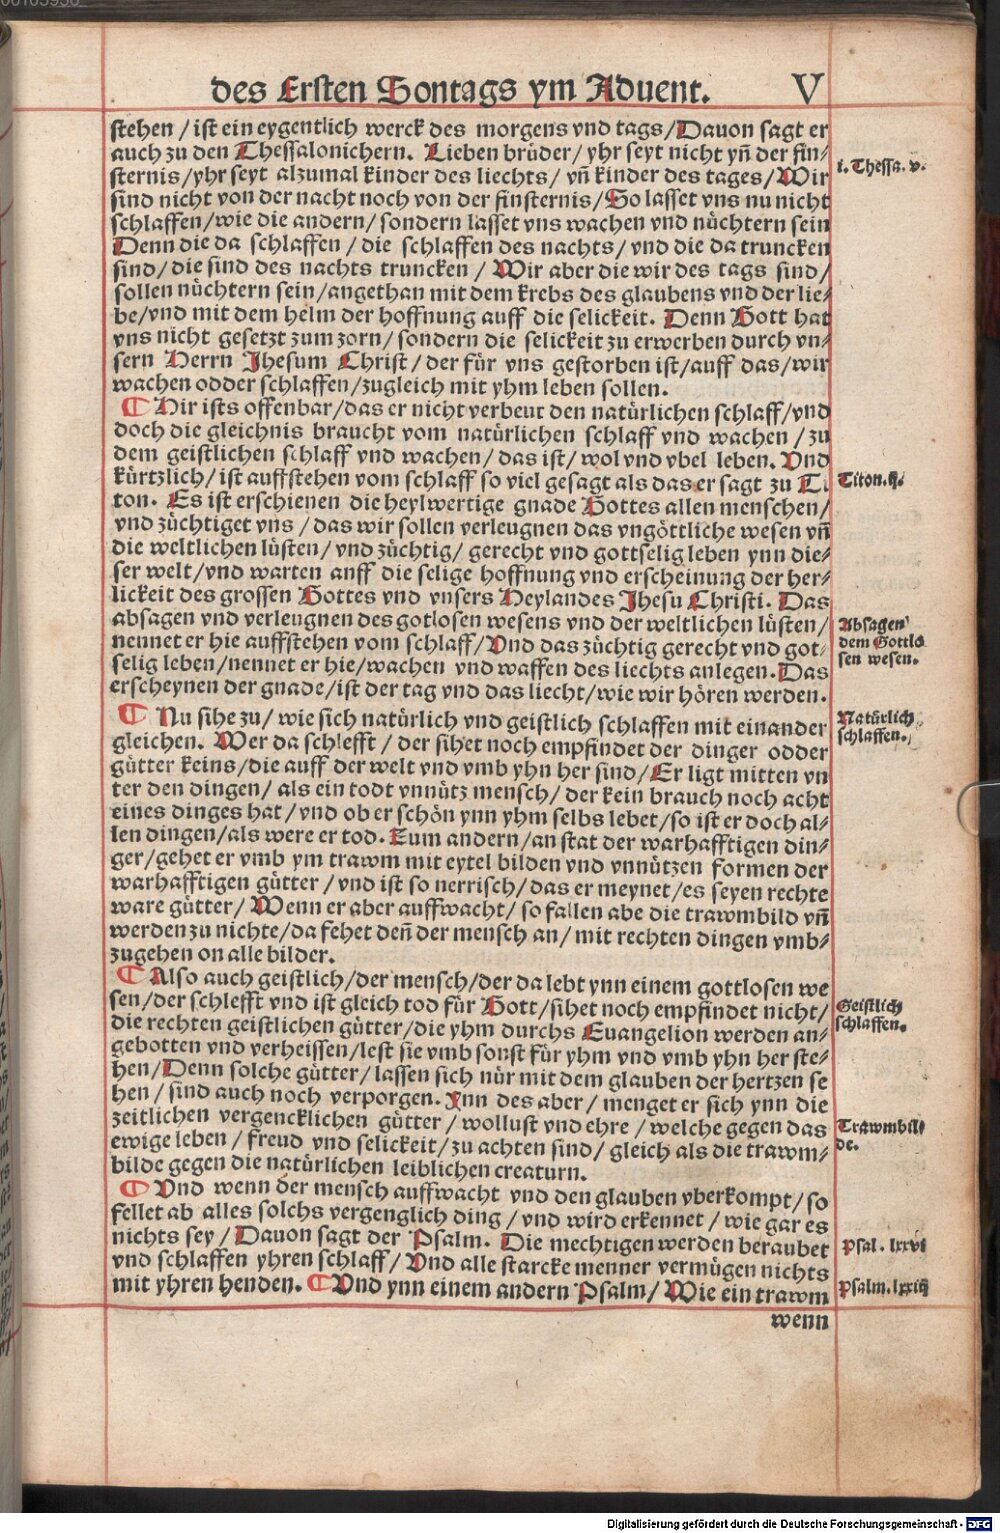 des Ersten Sontags ym Aduent. V
stehen / ist ein eygentlich werck des morgens vnd tags / Dauon sagt er
auch zu den Thessalonichern. Lieben brüder / yhr seyt nicht yn̄ der fin⸗
sternis / yhr seyt alzumal kinder des liechts / vn̄ kinder des tages / Wir
i. Thessa. v.
sind nicht von der nacht noch von der finsternis / So lasset vns nu nicht
schlaffen / wie die andern / sondern lasset vns wachen vnd nüchtern sein
Denn die da schlaffen / die schlaffen des nachts / vnd die da truncken
sind / die sind des nachts truncken / Wir aber die wir des tags sind /
sollen nüchtern sein / angethan mit dem krebs des glaubens vnd der lie⸗
be / vnd mit dem helm der hoffnung auff die selickeit. Denn Gott hat
vns nicht gesetzt zum zorn / sondern die selickeit zu erwerben durch vn⸗
sern Herrn Jhesum Christ / der für vns gestorben ist / auff das / wir
wachen odder schlaffen / zugleich mit yhm leben sollen.
¶ Hir ists offenbar / das er nicht verbeut den natürlichen schlaff / vnd
doch die gleichnis braucht vom natürlichen schlaff vnd wachen / zu
dem geistlichen schlaff vnd wachen / das ist / wol vnd vbel leben. Vnd
kürtzlich / ist auffstehen vom schlaff so viel gesagt als das er sagt zu Ti.
Titon. ij.
ton. Es ist erschienen die heylwertige gnade Gottes allen menschen /
vnd züchtiget vns / das wir sollen verleugnen das vngöttliche wesen vn̄
die weltlichen lüsten / vnd züchtig / gerecht vnd gottselig leben ynn die⸗
ser welt / vnd warten anff die selige hoffnung vnd erscheinung der her⸗
lickeit des grossen Gottes vnd vnsers Heylandes Jhesu Christi. Das
absagen vnd verleugnen des gotlosen wesens vnd der weltlichen lüsten /
nennet er hie auffstehen vom schlaff / Vnd das züchtig gerecht vnd got⸗
selig leben / nennet er hie / wachen vnd waffen des liechts anlegen. Das
erscheynen der gnade / ist der tag vnd das liecht / wie wir hören werden.
Absagen
dem Gottlo
sen wesen.
¶ Nu sihe zu / wie sich natürlich vnd geistlich schlaffen mit einander
gleichen. Wer da schlefft / der sihet noch empfindet der dinger odder
Natürlich
schlaffen.
gütter keins / die auff der welt vnd vmb yhn her sind / Er ligt mitten vn
ter den dingen / als ein todt vnnütz mensch / der kein brauch noch acht
eines dinges hat / vnd ob er schön ynn yhm selbs lebet / so ist er doch al⸗
len dingen / als were er tod. Zum andern / an stat der warhafftigen din⸗
ger / gehet er vmb ym trawm mit eytel bilden vnd vnnützen formen der
warhafftigen gütter / vnd ist so nerrisch / das er meynet / es seyen rechte
ware gütter / Wenn er aber auffwacht / so fallen abe die trawmbild vn̄
werden zu nichte / da fehet den̄ der mensch an / mit rechten dingen vmb⸗
zugehen on alle bilder.
¶ Also auch geistlich / der mensch / der da lebt ynn einem gottlosen we
sen / der schlefft vnd ist gleich tod für Gott / sihet noch empfindet nicht /
die rechten geistlichen gütter / die yhm durchs Euangelion werden an⸗
Geistlich
schlaffen.
gebotten vnd verheissen / lest sie vmb sonst für yhm vnd vmb yhn her ste⸗
hen / Denn solche gütter / lassen sich nür mit dem glauben der hertzen se
hen / sind auch noch verporgen. Ynn des aber / menget er sich ynn die
zeitlichen vergencklichen gütter / wollust vnd ehre / welche gegen das
ewige leben / freud vnd selickeit / zu achten sind / gleich als die trawm⸗
Trawmbil⸗
de.
bilde gegen die natürlichen leiblichen creaturn.
¶ Vnd wenn der mensch auffwacht vnd den glauben vberkompt / so
fellet ab alles solchs vergenglich ding / vnd wird erkennet / wie gar es
nichts sey / Dauon sagt der Psalm. Die mechtigen werden beraubet
Psal. lxxvi
vnd schlaffen yhren schlaff / Vnd alle starcke menner vermügen nichts
mit yhren henden. ¶ Vnd ynn einem andern Psalm / Wie ein trawm
Psalm. lxxiij
wenn
Digitalisierung gefördert durch die Deutsche Forschungsgemeinschaft - DFG